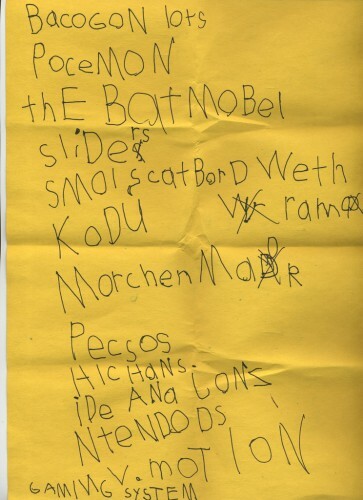 BacoGoN lots
PoceMON
thE BatMoBel
sliDers
SMols scatBorD Weth
ramp
KoDU
MorchenMaR
Pecsos
HIcHaNs.
iDe ANa JoNs
NteNDO DS
V.MOTION
GAMING SYSTEM